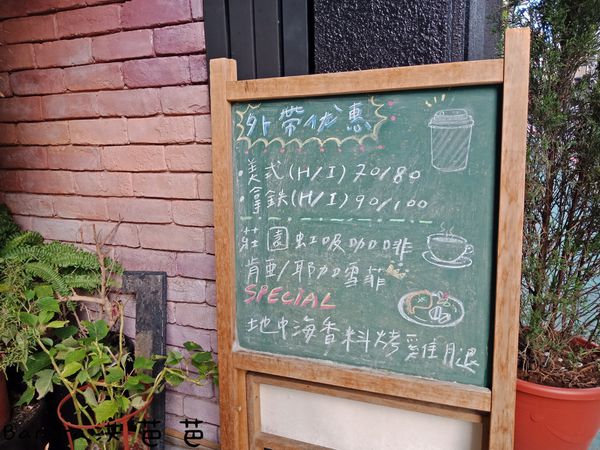 外帶优惠
・美式(H/I)70/80
・拿鉄(H/I)90/100
莊園虹吸咖啡
肯亞/耶加雪菲
SPECIAL
地中海香料烤雞腿